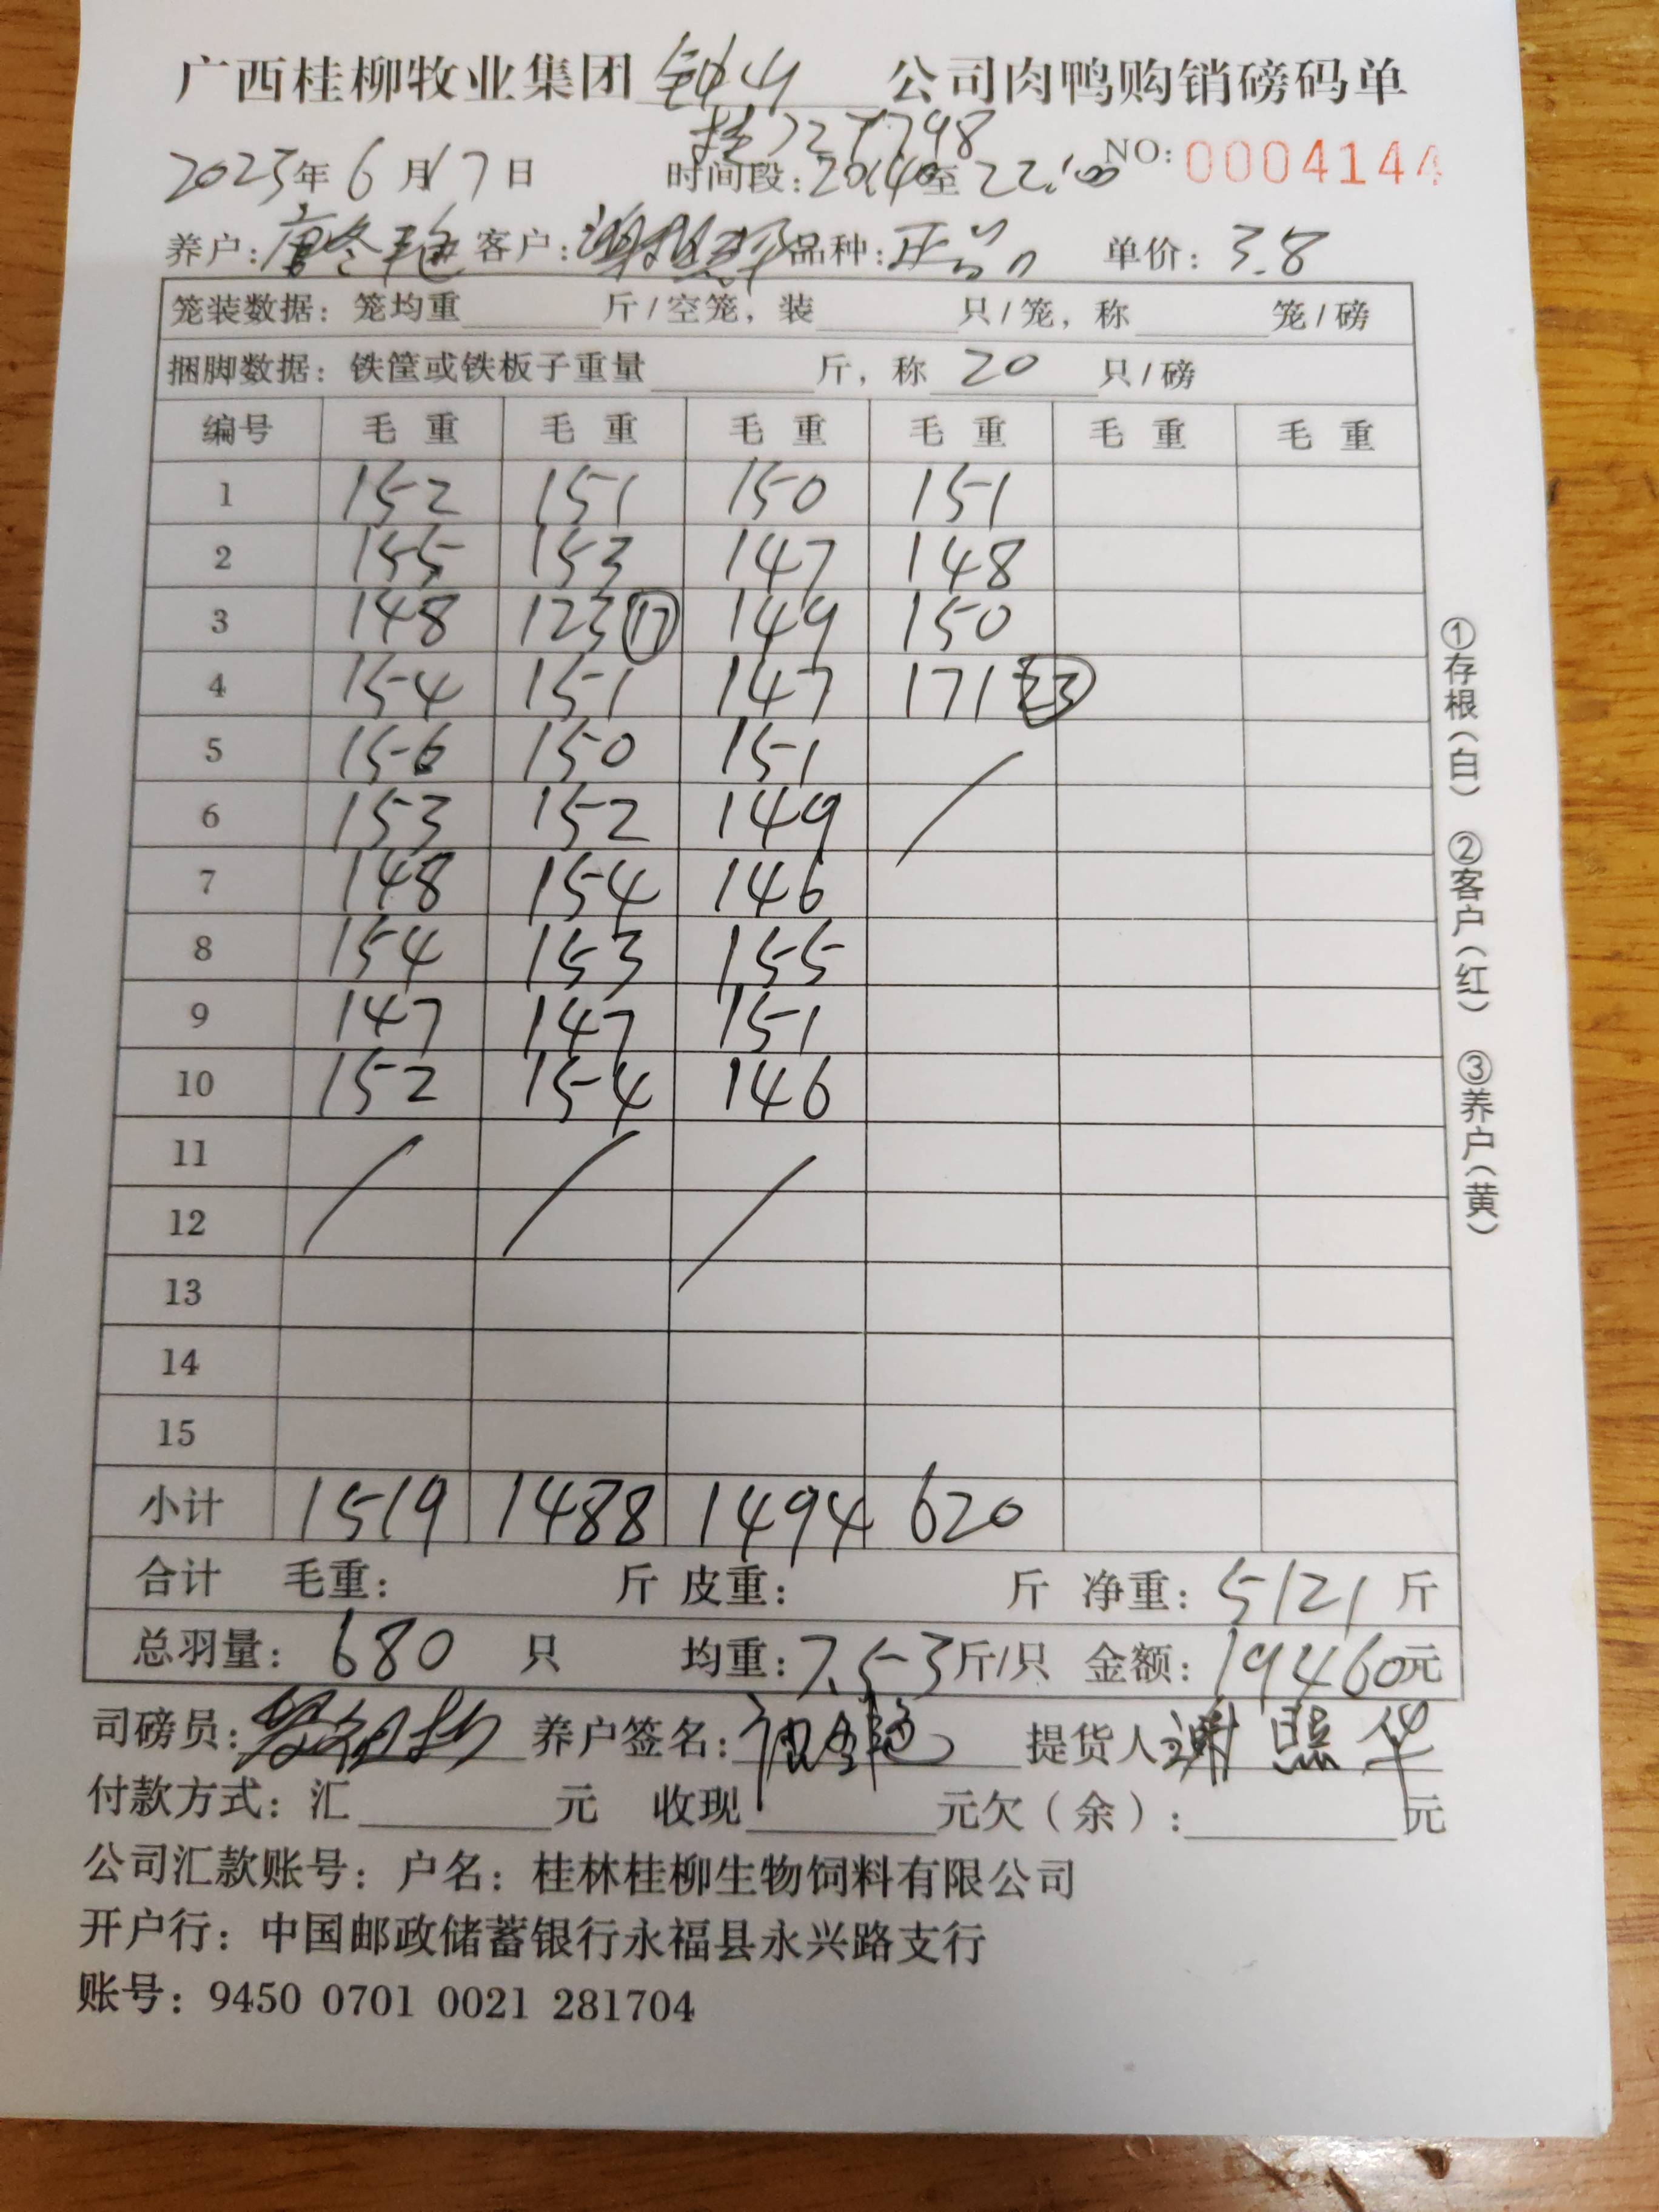 广西桂柳牧业集团 钟山 公司肉鸭购销磅码单
2023年6月17日 时间段:20:40至22:00 NO:0004144
养户: 客户: 品种:正品 单价:3.8
笼装数据: 笼均重 斤/空笼, 装 只/笼, 称 笼/磅
捆脚数据: 铁筐或铁板子重量 斤, 称 20 只/磅
编号 毛重 毛重 毛重 毛重 毛重 毛重
1 152 151 150 151
2 155 153 147 148
3 148 123 ⑰ 149 150
4 154 151 147 171 ㉓
5 156 150 151
6 153 152 149
7 148 154 146
8 154 153 155
9 147 147 151
10 152 154 146
11
12
13
14
15
小计 1519 1488 1494 620
合计 毛重: 斤 皮重: 斤 净重:5121斤
总羽量:680只 均重:7.53斤/只 金额:19460元
司磅员: 养户签名: 提货人 谢照华
付款方式: 汇 元 收现 元欠(余): 元
公司汇款账号: 户名: 桂林桂柳生物饲料有限公司
开户行: 中国邮政储蓄银行永福县永兴路支行
账号: 9450 0701 0021 281704
①存根(白) ②客户(红) ③养户(黄)